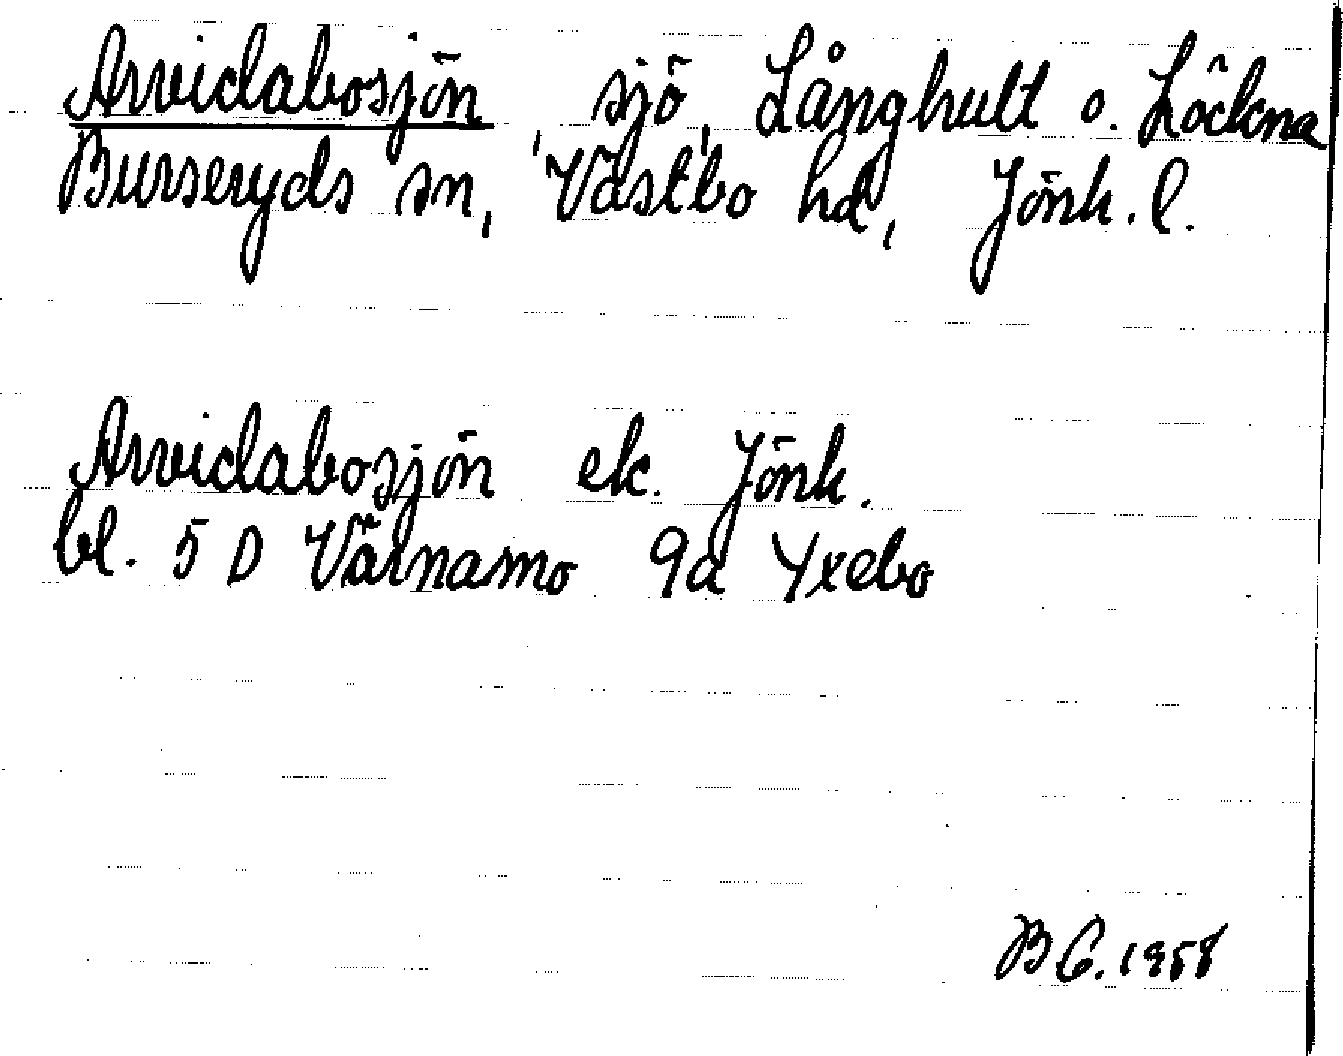 Arvidabosjön, sjö, Långhult o. Löckna
Burseryds sn, Västbo hd, Jönk. l.
Arvidabosjön ek. Jönk.
bl. 5 D Värnamo 9a Yxebo
B C. 1958